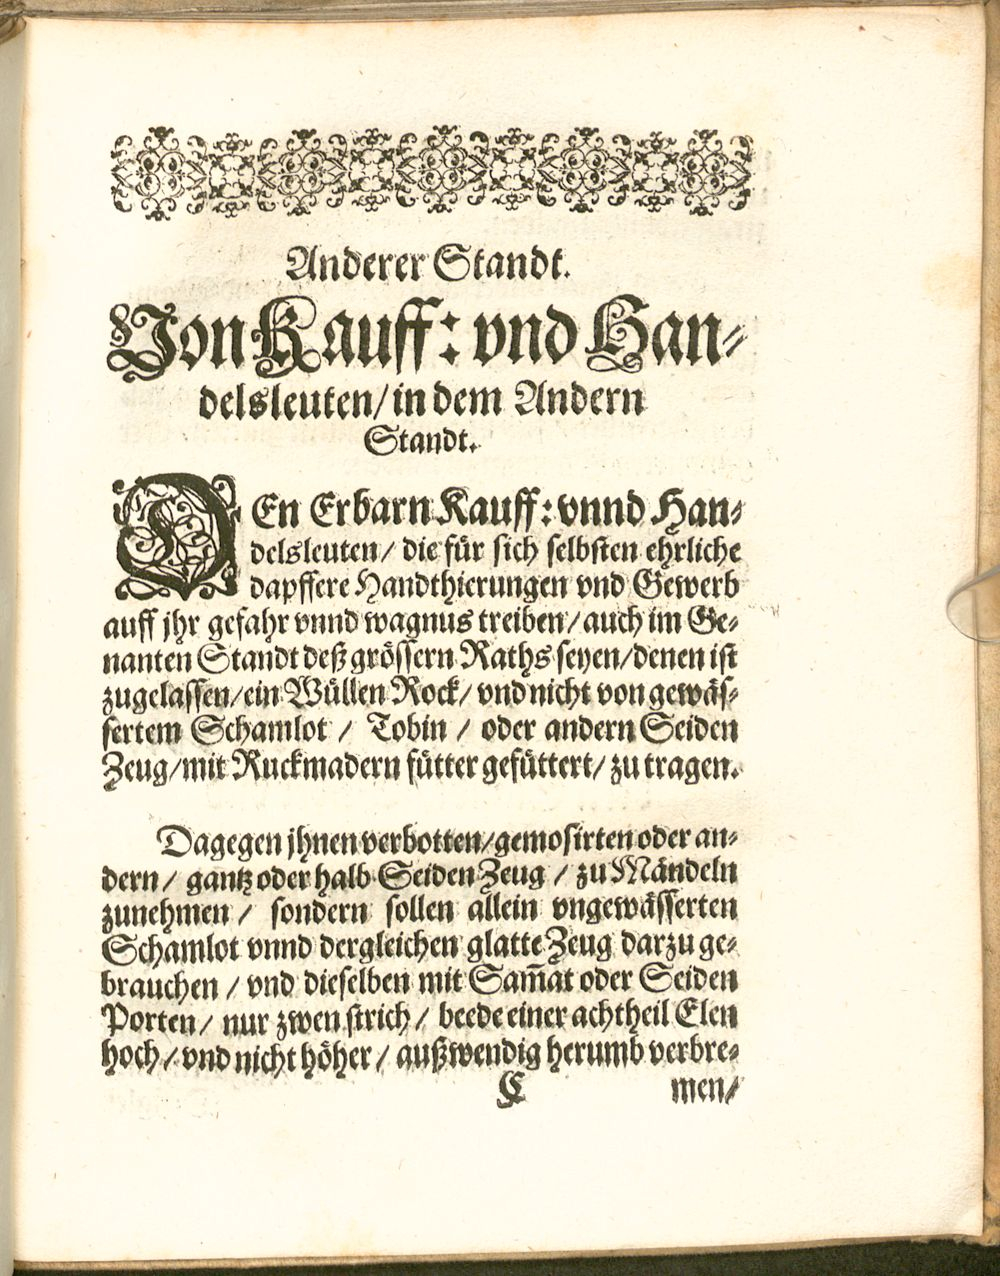 Anderer Standt.
Von Kauff: vnd Han-
delsleuten/ in dem Andern
Standt.
DEn Erbarn Kauff: vnnd Han-
delsleuten/ die für sich selbsten ehrliche
dapffere Handthierungen vnd Gewerb
auff jhr gefahr vnnd wagnus treiben/ auch im Ge-
nanten Standt deß grössern Raths seyen/ denen ist
zugelassen/ ein Wüllen Rock/ vnd nicht von gewäs-
sertem Schamlot / Tobin / oder andern Seiden
Zeug/ mit Ruckmadern fütter gefüttert/ zu tragen.
Dagegen jhnen verbotten/ gemosirten oder an-
dern / gantz oder halb Seiden Zeug / zu Mändeln
zunehmen / sondern sollen allein vngewässerten
Schamlot vnnd dergleichen glatte Zeug darzu ge-
brauchen / vnd dieselben mit Sam̃at oder Seiden
Porten/ nur zwen strich/ beede einer achtheil Elen
hoch/ vnd nicht höher/ außwendig herumb verbre-
C men/